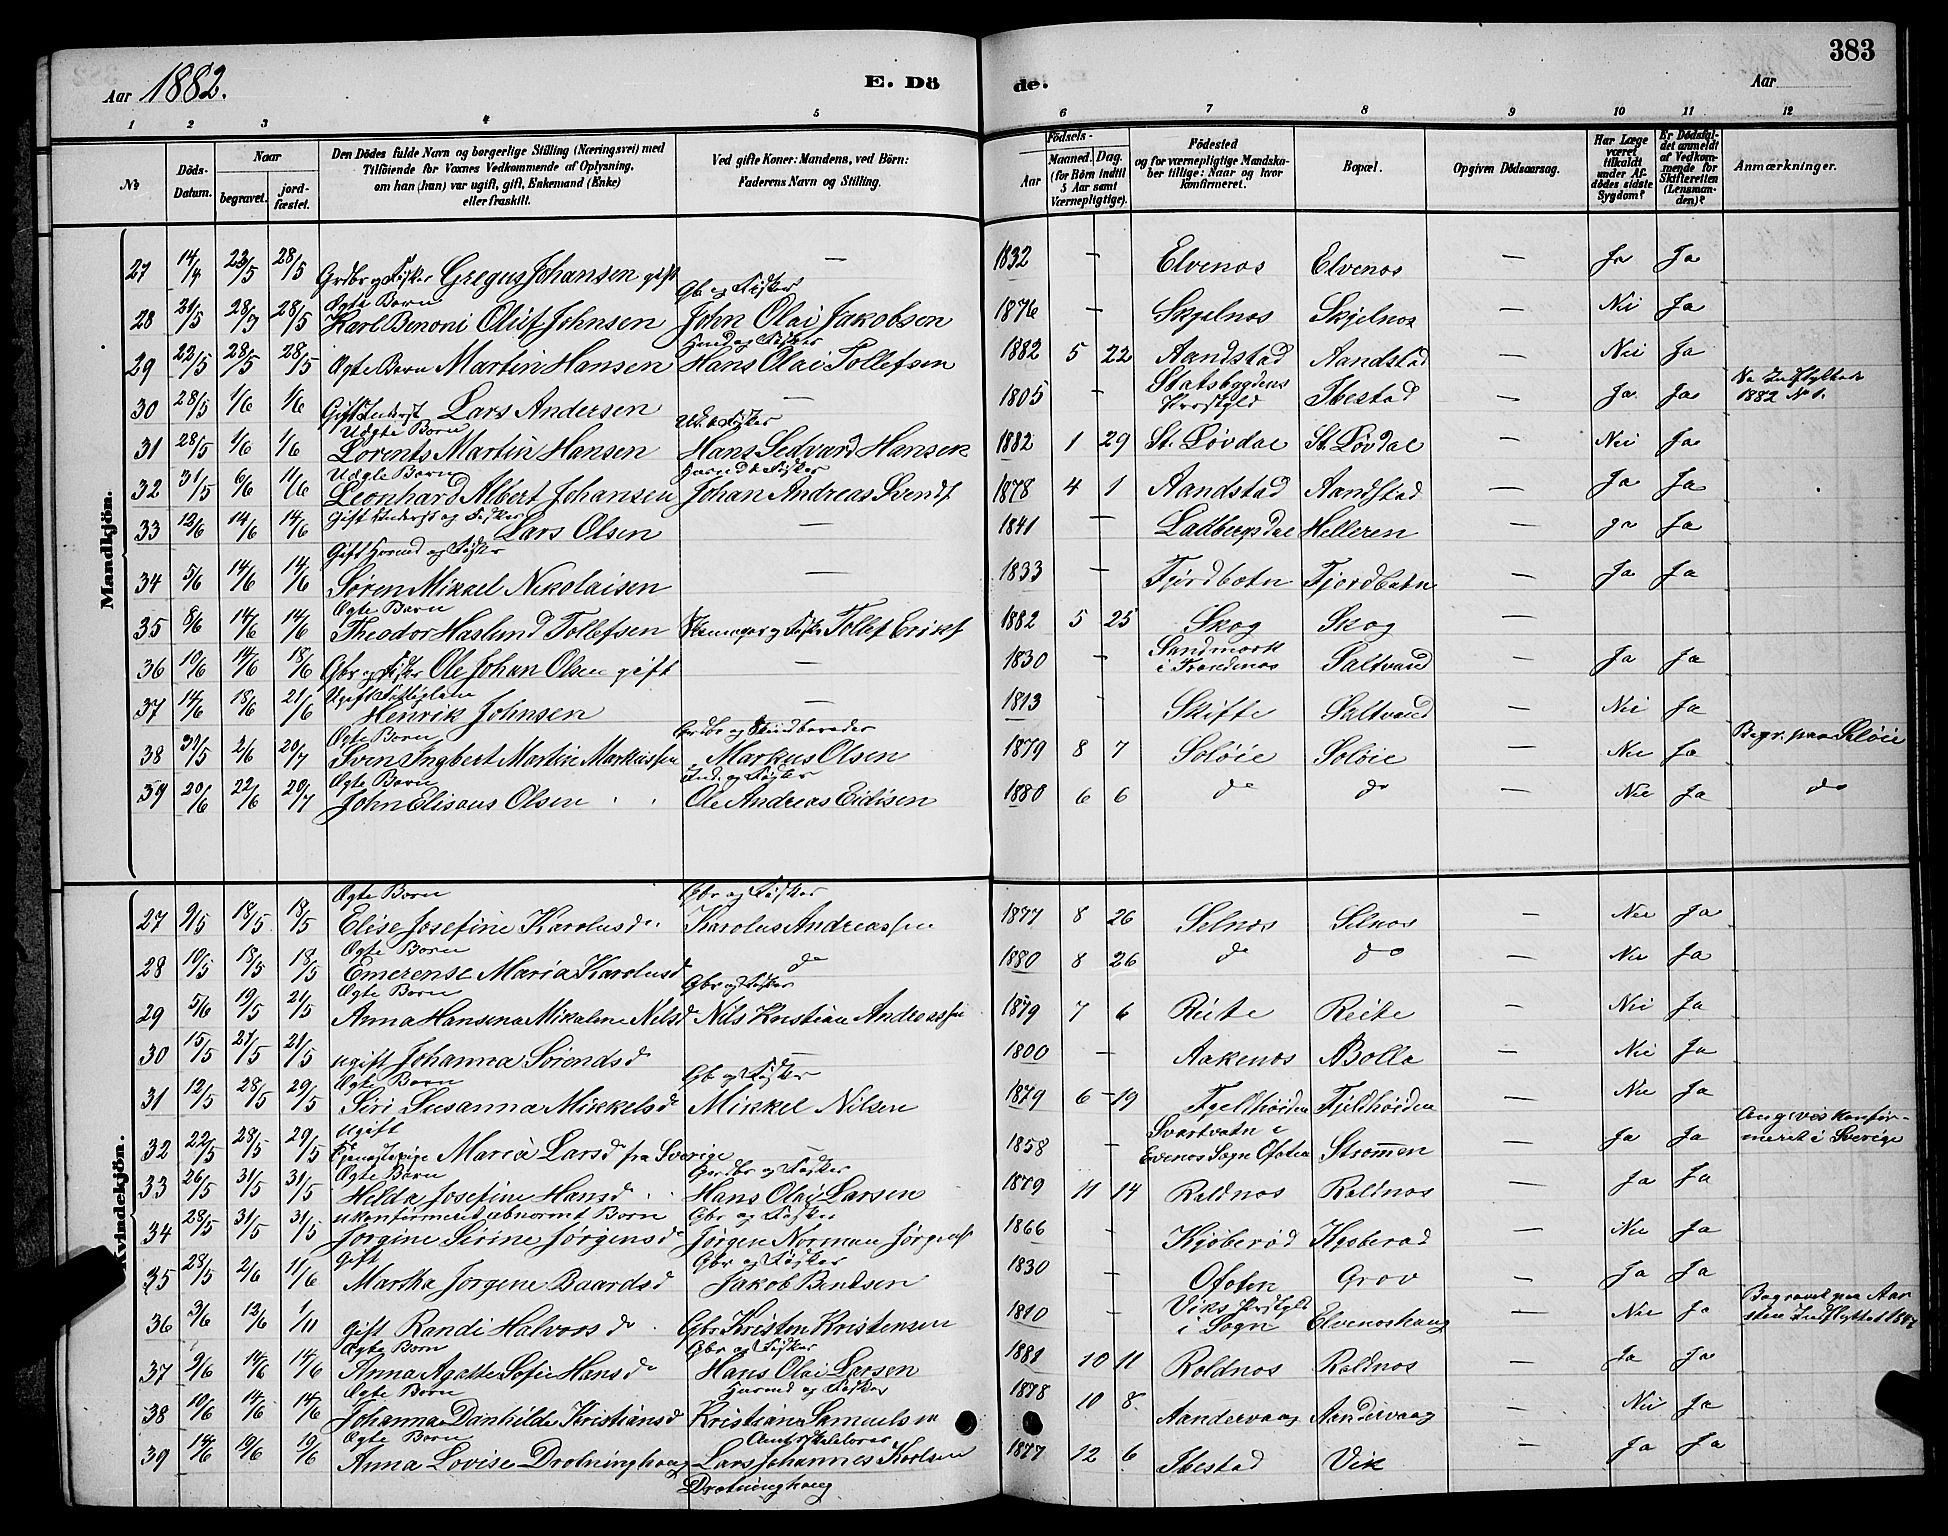 383
Aar 1882.
E. Dö
de.
Aar
1 2 3 4 5 6 7 8 9 10 11 12
No
Döds-Datum.
Naar
begravet.
jord-fæstet.
Den Dödes fulde Navn og borgerlige Stilling (Næringsvei) med
Tilföiende for Voxnes Vedkommende af Oplysning,
om han (hun) var ugift, gift, Enkemand (Enke)
eller fraskilt.
Ved gifte Koner: Mandens, ved Börn:
Faderens Navn og Stilling.
Födsels-
Aar
Maaned. Dag.
(for Börn indtil
5 Aar samt
Værnepligtige).
Födested
og for værnepligtige Mandska-
ber tillige: Naar og hvor
konfirmeret.
Bopæl.
Opgiven Dödsaarsag.
Har Læge
været
tilkaldt
under Af-
dödes sidste
Sygdom?
Er Dödsfal-
det anmeldt
af Vedkom-
mende for
Skifteretten
(Lensman-
den)?
Anmærkninger.
Mandkjön.
27 14/4 23/5 28/5 Grdbr og Fisker Gregus Johansen gift — 1832 — Elvenos Elvenos — Ja Ja
Ægte Barn Gb og Fisker
28 21/5 28/5 28/5 Karl Benoni Oluf Johnsen John Olai Jakobsen 1876 — Skjelnos Skjelnos — Nei Ja
29 22/5 28/5 28/5 Ægte Barn Martin Hansen Hans Olai Tollefsen 1882 5 22 Aandstad Aandstad — Nei Ja
30 28/5 1/6 1/6 Gift Inderst Lars Andersen — 1805 — Statsbygdens Prstgjld Ibestad — Ja Ja No Indflyttede 1882 No 1.
Uægte Barn
31 28/5 1/6 1/6 Lorents Martin Hansen Hans Sedvard Hansen 1882 1 29 St. Løvdal St. Løvdal — Nei Ja
Uægte Barn
32 31/5 6/6 11/6 Leonhard Albert Johansen Johan Andreas Svends 1878 4 1 Aandstad Aandstad — Ja Ja
Gift Inderst og Fisker
33 12/6 14/6 14/6 Lars Olsen — 1841 — Ladbergsdal Helleren — Ja Ja
Gift Husmd og Fisker
34 5/6 14/6 14/6 Søren Mikkel Nikolaisen — 1833 — Fjordbotn Fjordbotn — Ja Ja
Ægte Barn
35 8/6 14/6 14/6 Theodor Haslund Tollefsen Tollef Eriks 1882 5 25 Skog Skog —
36 10/6 14/6 18/6 Gbr og Fisker Ole Johan Olsen gift — 1830 — Sandmark i Trondenos Saltvand — Ja Ja
37 14/6 18/6 21/6 Ugift Fattiglem Henrik Johnsen — 1813 — Skifte Saltvand — Nei Ja
Ægte Barn
38 31/5 2/6 20/7 Sven Ingbert Martin Markussen Markus Olsen 1879 8 7 Soløie Soløie — Nei Ja Begr. paa Soløie
Ægte Barn Ind. og Fisker
39 20/6 22/6 20/7 John Elisæus Olsen Ole Andreas Eidisen 1880 6 6 do do — Nei Ja do
Kvindekjön.
Ægte Barn Gbr og Fisker
27 9/5 18/5 18/5 Elise Josefine Karolusdr Karolus Andreassen 1877 8 26 Selnos Selnos — Nei Ja
Ægte Barn
28 10/5 18/5 18/5 Emerense Maria Karolusd do 1880 8 26 do do — Nei Ja
Ægte Barn Gbr og Fisker
29 5/6 19/5 21/5 Anna Hansena Mikaline Nilsd Nils Kristian Andreassen 1879 7 6 Reite Reite — Nei Ja
30 15/5 21/5 21/5 ugift Johanna Sørendsdr — 1800 — Aakenos Bolla — Nei Ja
Ægte Barn Gb og Fisker
31 12/5 28/5 29/5 Siri Susanna Mikkelsdr Mikkel Nilsen 1879 6 19 Fjeldhøiden Fjeldhøiden — Nei Ja
ugift
32 22/5 28/5 29/5 Tjenestepige Maria Larsdr fra Sverige — 1858 — Svartvatn i Evenos Sogn Ofoten Strømmen — Ja Ja Angives konfir-meret i Sverige
Ægte Barn Gardbr og Fisker
33 26/5 31/5 31/5 Helda Josefine Hansd Hans Olai Larsen 1879 11 14 Roldnos Roldnos — Ja Ja
ukonfirmeret abnormt Barn Gbr og Fisker
34 28/5 31/5 31/5 Jørgine Serine Jørgensdr Jørgen Norman Jørgens 1866 — Kjøberød Kjøberød — Nei Ja
Gift Gbr og Fisker
35 28/5 2/6 11/6 Martha Jørgene Baardsdr Jakob Bentsen 1830 — Ofoten Grov — Ja Ja
36 3/6 12/6 1/11 Gift Randi Halvorsdr Gbr Kristen Kristensen 1810 — Viks Prstgjld i Sogn Elvenoshaug — Nei Ja
Ægte Barn Gbr og Fisker
37 9/6 14/6 14/6 Anna Agathe Sofie Hansdr Hans Olai Larsen 1881 10 11 Roldnos Roldnos — Ja Ja
Ægte Barn Husmd og Fisker
38 10/6 14/6 14/6 Johanna Danhilda Kristiansd Kristian Samuelsen 1878 10 8 Aandervaag Aandervaag — Nei Ja
Ægte Barn Amtsskolelærer
39 14/6 19/6 19/6 Anna Lovise Drotninghaug Lars Johannes Karlsen 1877 12 6 Ibestad Vik — Ja Ja
Drotninghaug